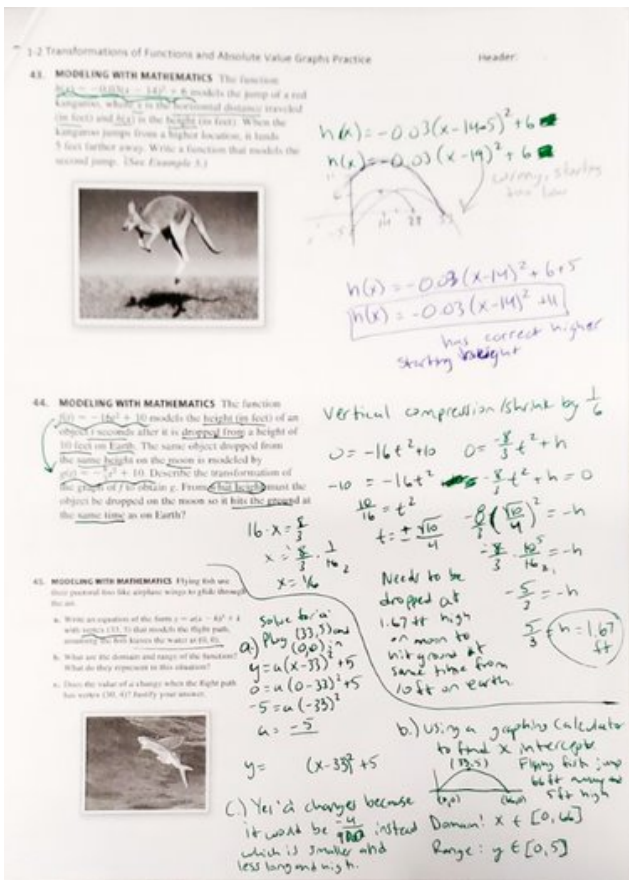 1-2 Transformations of Functions and Absolute Value Graphs Practice
Header:
43. MODELING WITH MATHEMATICS The function
h(x) = -0.03(x - 14)² + 6 models the jump of a red
kangaroo, where x is the horizontal distance traveled
(in feet) and h(x) is the height (in feet). When the
kangaroo jumps from a higher location, it lands
5 feet farther away. Write a function that models the
second jump. (See Example 5.)
h(x) = -0.03(x-14-5)² + 6
h(x) = -0.03(x-19)² + 6
wrong, starting
too low
6
14 28 33
-5
h(x) = -0.03(x-14)² + 6+5
h(x) = -0.03(x-14)² + 11
has correct higher
starting height
44. MODELING WITH MATHEMATICS The function
f(t) = -16t² + 10 models the height (in feet) of an
object t seconds after it is dropped from a height of
10 feet on Earth. The same object dropped from
the same height on the moon is modeled by
g(t) = -8/3 t² + 10. Describe the transformation of
the graph of f to obtain g. From what height must the
object be dropped on the moon so it hits the ground at
the same time as on Earth?
Vertical compression/shrink by 1/6
0 = -16t² + 10
-10 = -16t²
10/16 = t²
t = ± √10/4
0 = -8/3 t² + h
-8/3 t² + h = 0
-8/3 (√10/4)² = -h
-8/3 · 10/16 = -h
-5/3 = -h
5/3 = h = 1.67
ft
16·x = 8/3
x = 8/3 · 1/16
x = 1/6
Needs to be
dropped at
1.67 ft high
on moon to
hit ground at
same time from
10 ft on earth.
45. MODELING WITH MATHEMATICS Flying fish use
their pectoral fins like airplane wings to glide through
the air.
a. Write an equation of the form y = a(x - h)² + k
with vertex (33, 5) that models the flight path,
assuming the fish leaves the water at (0, 0).
b. What are the domain and range of the function?
What do they represent in this situation?
c. Does the value of a change when the flight path
has vertex (30, 4)? Justify your answer.
Solve for 'a'
a.) Plug (33,5) and
(0,0) in
y = a(x-33)² + 5
0 = a(0-33)² + 5
-5 = a(-33)²
a = -5
y = (x-33)² + 5
b.) Using a graphing calculator
to find x intercepts
(33,5)
(0,0) (66,0)
Flying fish jump
66 ft away and
5 ft high
Domain: x ∈ [0,66]
Range: y ∈ [0,5]
c.) Yes 'a' changes because
it would be -4/900 instead
which is smaller and
less long and high.